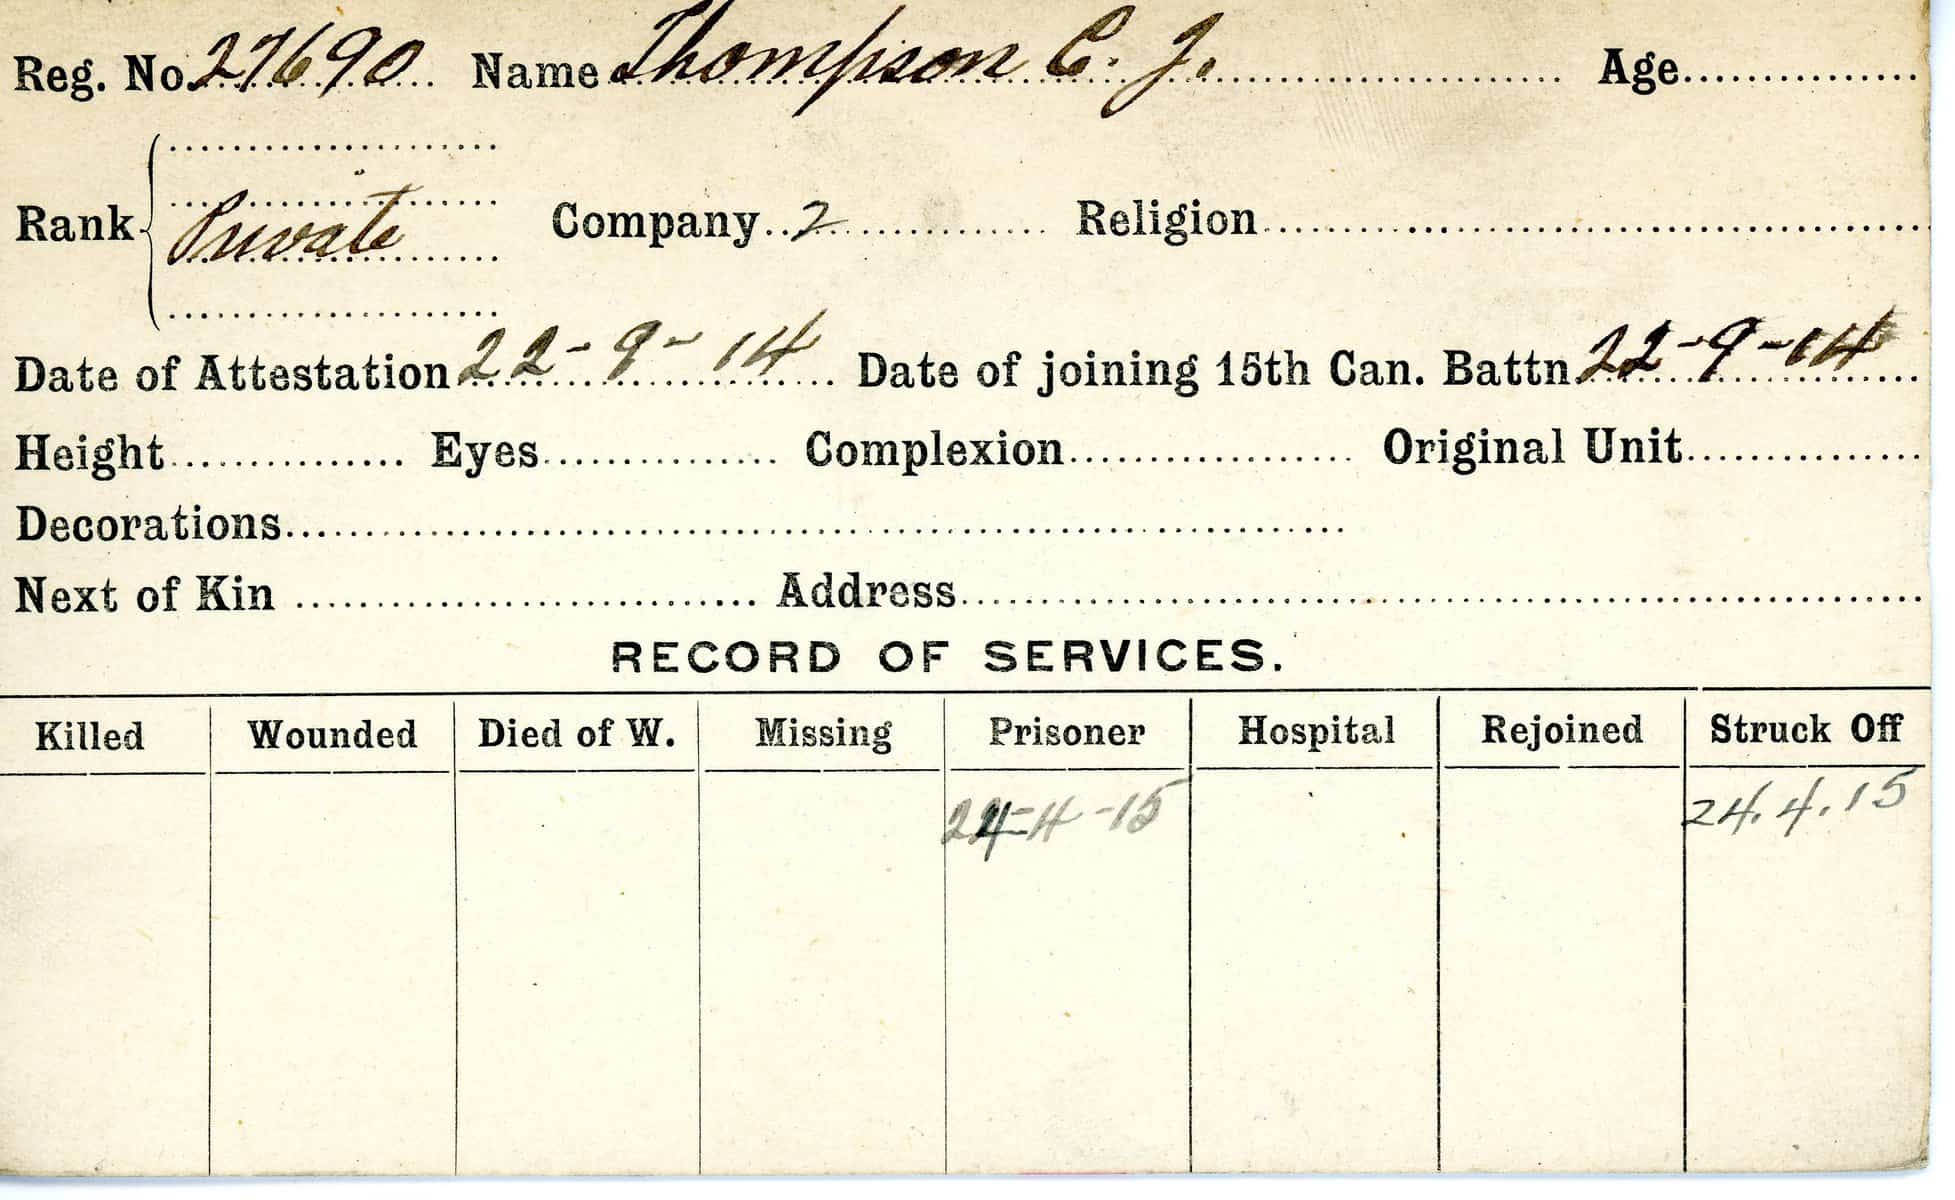 Reg. No. 27690 Name Thompson C. J. Age
Rank Private Company 2 Religion
Date of Attestation 22-9-14 Date of joining 15th Can. Battn 22-9-14
Height Eyes Complexion Original Unit
Decorations
Next of Kin Address
RECORD OF SERVICES.
Killed Wounded Died of W. Missing Prisoner Hospital Rejoined Struck Off
24-4-15 24.4.15